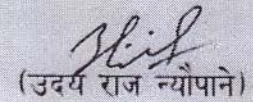 (उदय राज न्यौपाने)